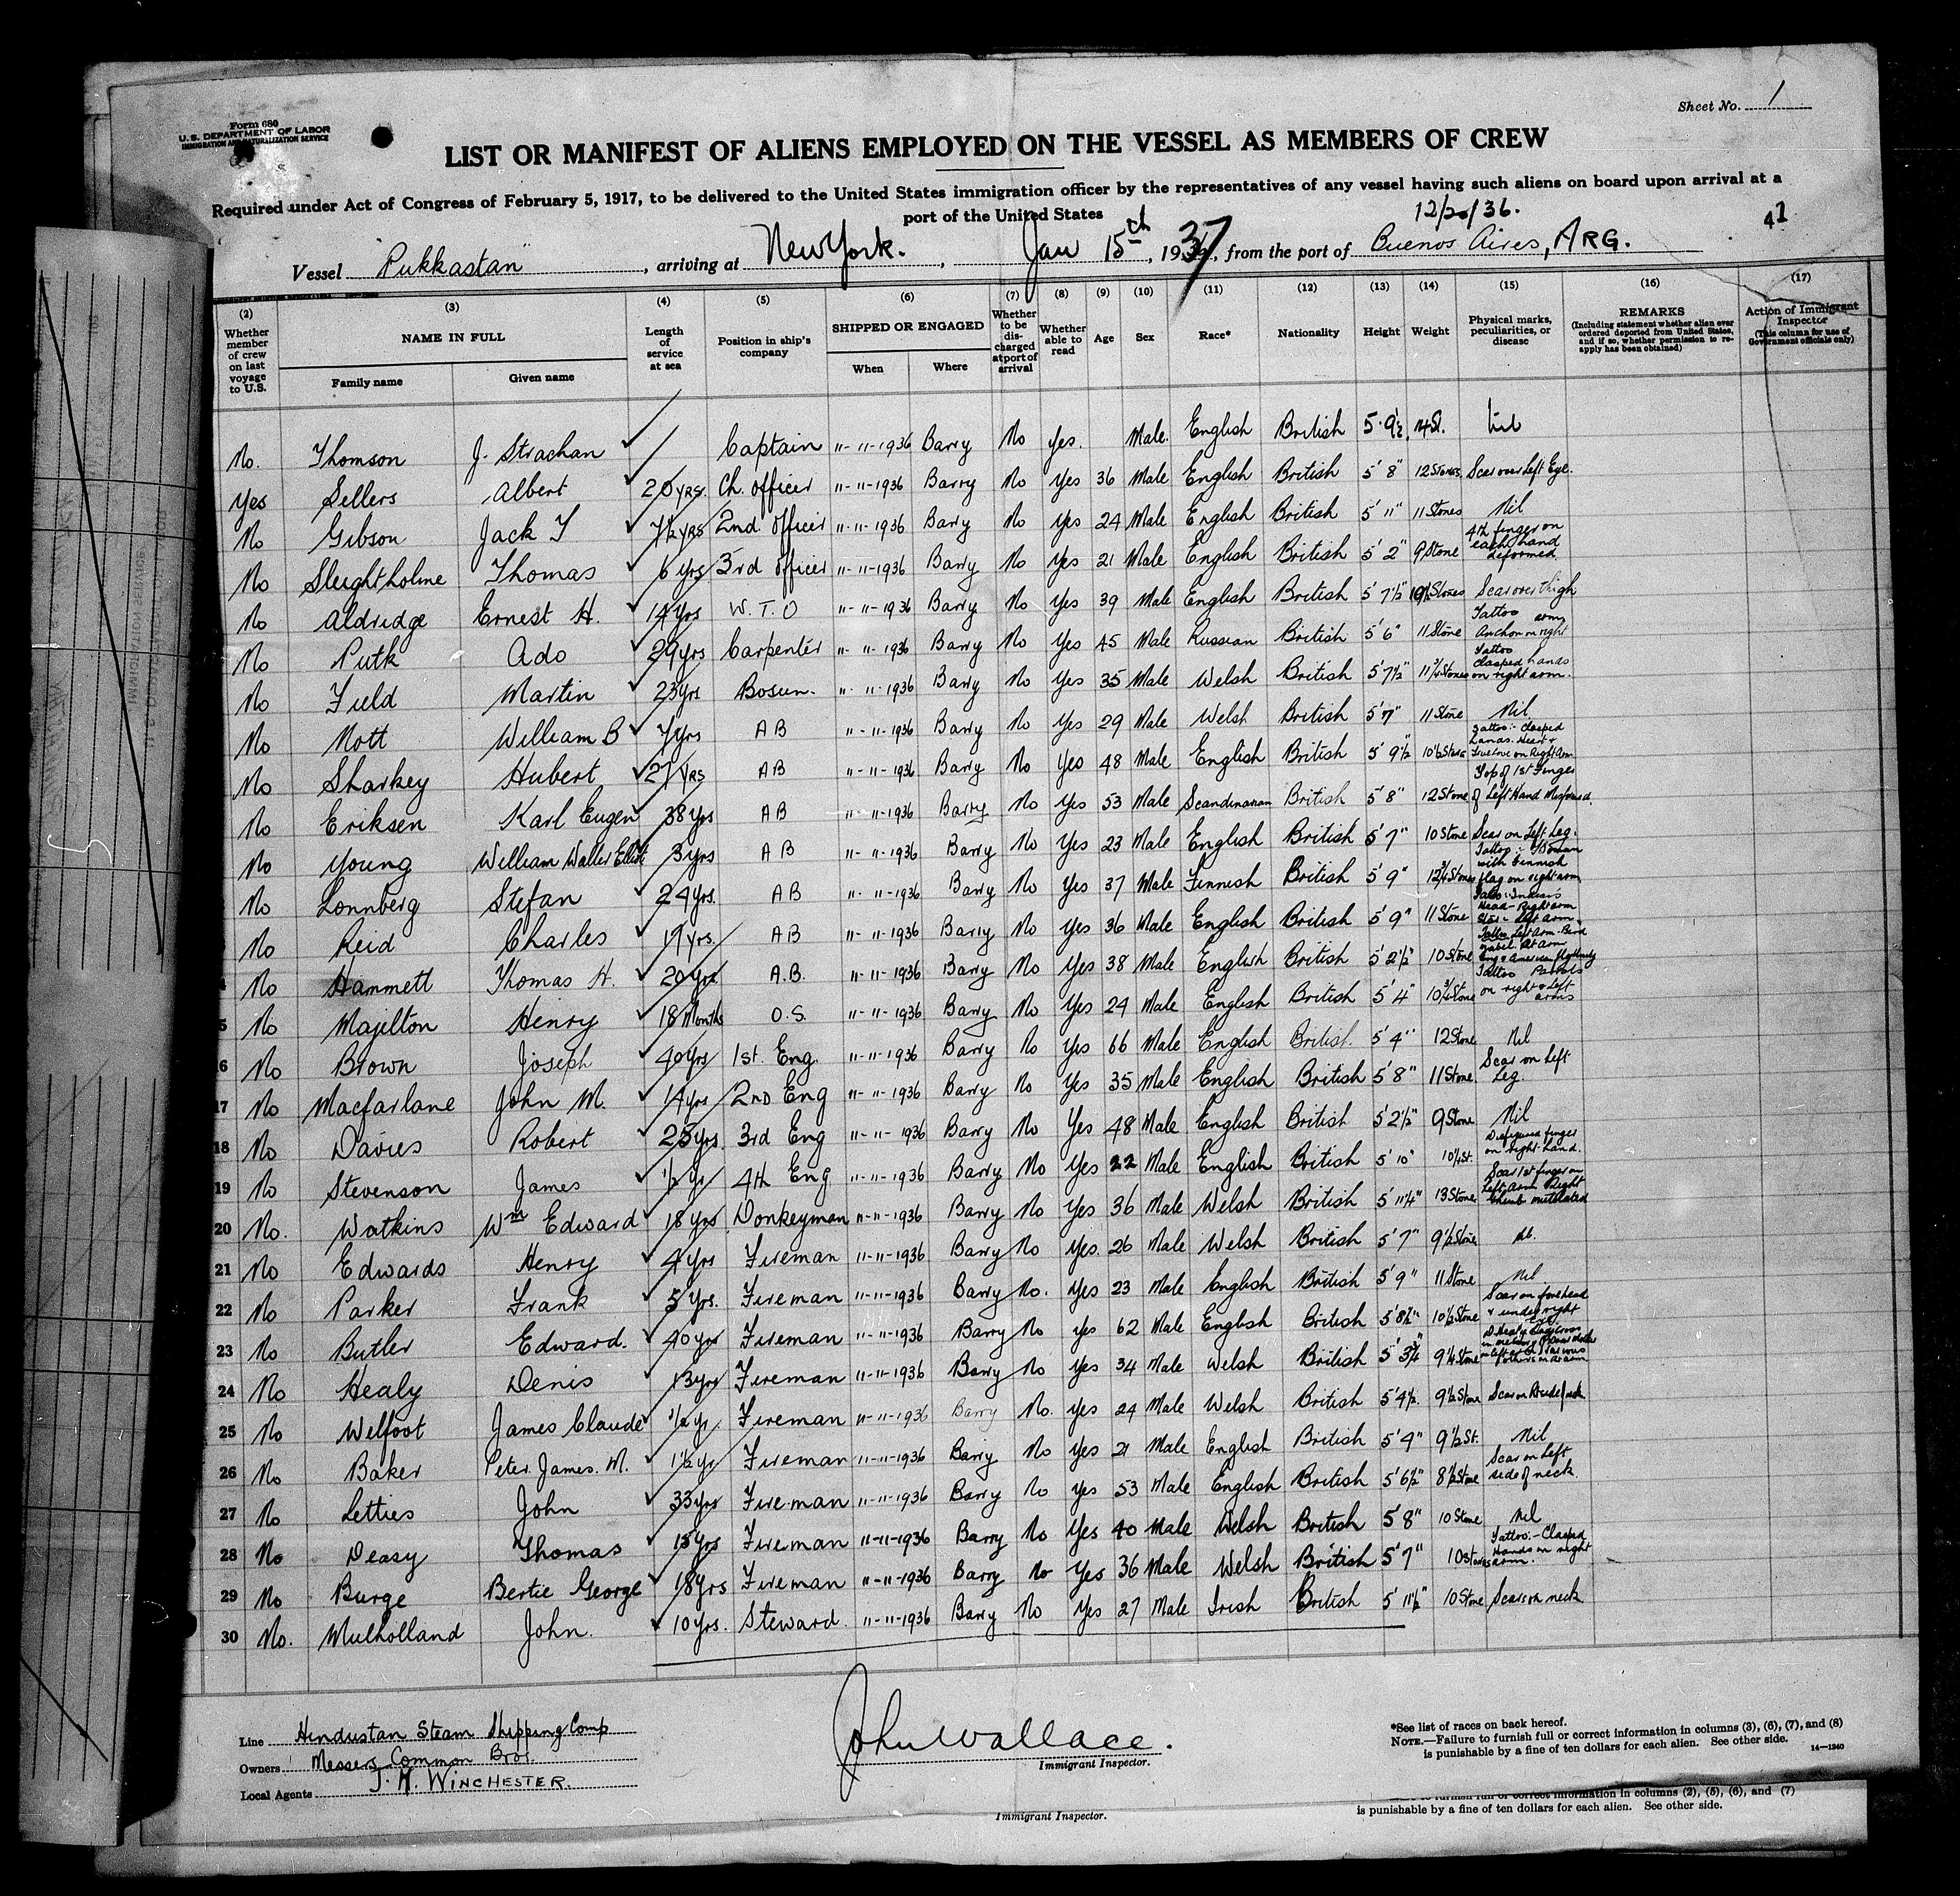 Sheet No. 1
Form 680
U. S. DEPARTMENT OF LABOR
IMMIGRATION AND NATURALIZATION SERVICE
LIST OR MANIFEST OF ALIENS EMPLOYED ON THE VESSEL AS MEMBERS OF CREW
Required under Act of Congress of February 5, 1917, to be delivered to the United States immigration officer by the representatives of any vessel having such aliens on board upon arrival at a
port of the United States
12/20/36. 41
Vessel "Pukkastan", arriving at New York., Jan 15th, 1937, from the port of Buenos Aires, ARG.
(2) (3) (4) (5) (6) (7) (8) (9) (10) (11) (12) (13) (14) (15) (16) (17)
Whether member of crew on last voyage to U.S.
NAME IN FULL
Family name Given name
Length of service at sea
Position in ship's company
SHIPPED OR ENGAGED
When Where
Whether to be discharged at port of arrival
Whether able to read
Age
Sex
Race*
Nationality
Height
Weight
Physical marks, peculiarities, or disease
REMARKS
(Including statement whether alien ever ordered deported from United States, and if so, whether permission to reapply has been obtained)
Action of Immigrant Inspector
(This column for use of Government officials only)
No. Thomson J. Strachan Captain 11-11-1936 Barry No Yes. Male. English British 5-9½ 14 St. Nil
Yes Sellers Albert 20 yrs. Ch. officer 11-11-1936 Barry No Yes 36 Male English British 5' 8" 12 Stones Scar over Left Eye.
No Gibson Jack T 7½ yrs 2nd officer 11-11-1936 Barry No Yes 24 Male English British 5' 11" 11 Stones Nil
No Sleightholme Thomas 6 yrs 3rd officer 11-11-1936 Barry No Yes 21 Male English British 5' 2" 9 Stone 4th finger on each hand deformed
No Aldridge Ernest H. 14 yrs W. T. O 11-11-1936 Barry No Yes 39 Male English British 5' 7½" Stones Scar over thigh
No Putk Ado 29 yrs Carpenter 11-11-1936 Barry No Yes 45 Male Russian British 5' 6" 11 Stone Tattoo Anchor on right arm
No Field Martin 23 yrs Bosun. 11-11-1936 Barry No Yes 35 Male Welsh British 5' 7½" 11¾ Stones Tattoo clasped hands on right arm.
No Mott William B 7 yrs A B 11-11-1936 Barry No Yes 29 Male Welsh British 5' 7" 11 Stone Nil
No Sharkey Hubert 27 yrs A B 11-11-1936 Barry No Yes 48 Male English British 5' 9½ 10½ Stone Tattoo:- Clasped hands. Heart & True Love on Right Arm
No Eriksen Karl Eugen 38 yrs A B 11-11-1936 Barry No Yes 53 Male Scandinavian British 5' 8" 12 Stone Top of 1st Finger of Left Hand Misformed.
No Young William Waller 3 yrs A B 11-11-1936 Barry No Yes 23 Male English British 5' 7" 10 Stone Scar on Left Leg.
No Lonnberg Stefan 24 yrs. A B 11-11-1936 Barry No Yes 37 Male Finnish British 5' 9" 12¾ Stones Tattoo:- Woman with Finnish flag on right arm
No Reid Charles 17 yrs. A B 11-11-1936 Barry No Yes 36 Male English British 5' 9" 11 Stone Tattoo: Indians Head - Right arm Star - Left arm
No Hammett Thomas H. 20 yrs A.B. 11-11-1936 Barry No Yes 38 Male English British 5' 2½" 10 Stone Tattoo Left Arm - Bird
5 No Majilton Henry 18 Months O.S. 11-11-1936 Barry No Yes 24 Male English British 5' 4" 10¾ Stone Tattoo Parrots on right & left arms
6 No Brown Joseph 40 yrs 1st. Eng. 11-11-1936 Barry No Yes 66 Male English British. 5' 4" 12 Stone Nil
17 No Macfarlane John M. 14 yrs 2nd Eng 11-11-1936 Barry No Yes 35 Male English British 5' 8" 11 Stone Scar on Left Leg.
18 No Davies Robert 25 yrs. 3rd Eng 11-11-1936 Barry No Yes 48 Male English British 5' 2½" 9 Stone Nil
19 No Stevenson James ½ yr 4th Eng 11-11-1936 Barry No Yes 22 Male English British 5' 10" 10½ St. Disfigured finger on right hand.
20 No. Watkins Wm Edward 18 yrs Donkeyman 11-11-1936 Barry No Yes 36 Male Welsh British 5' 11¼" 13 Stone Scar 1st finger on Left arm Right thumb mutilated
21 No Edwards Henry 4 yrs Fireman 11-11-1936 Barry No Yes. 26 Male Welsh British 5' 7" 9½ Stone
22 No Parker Frank 5 yrs. Fireman 11-11-1936 Barry No. Yes 23 Male English British 5' 9" 11 Stone Nil
23 No Butler Edward. 40 yrs Fireman 11-11-1936 Barry No yes 62 Male English British 5' 8½" 10½ Stone Scar on forehead & under right eye.
24 No Healy Denis 13 yrs Fireman 11-11-1936 Barry No Yes 34 Male Welsh British 5' 3¾" 9¼ Stone
25 No Welfoot James Claude ½ yr. Fireman 11-11-1936 Barry No. Yes 24 Male Welsh British 5' 4½ 9½ Stone Scar on R side of neck
26 No Baker Peter. James. M. 1½ yr Fireman 11-11-1936 Barry No Yes 21 Male English British 5' 9" 9½ St. Nil
27 No Letties John 33 yrs Fireman 11-11-1936 Barry No Yes 53 Male English British 5' 6½" 8½ Stone Scar on Left side of neck
28 No Deasy Thomas 15 yrs Fireman 11-11-1936 Barry No Yes 40 Male Welsh British 5' 8" 10 Stone Nil
29 No Burge Bertie George 18 yrs Fireman 11-11-1936 Barry No Yes 36 Male Welsh British 5' 7" 10 Stones Tattoo:- Clasped Hands on right arm.
30 No. Mulholland John. 10 yrs. Steward. 11-11-1936 Barry No Yes 27 Male Irish British 5' 11½" 10 Stone Scar on neck
Line Hindustan Steam Shipping Comp
Owners Messers. Common Bros.
Local Agents J. H. WINCHESTER.
John Wallace.
Immigrant Inspector.
*See list of races on back hereof.
NOTE.—Failure to furnish full or correct information in columns (3), (6), (7), and (8)
is punishable by a fine of ten dollars for each alien. See other side. 14—1240
to furnish full or correct information in columns (2), (5), (6), and (7)
is punishable by a fine of ten dollars for each alien. See other side.
Immigrant Inspector.